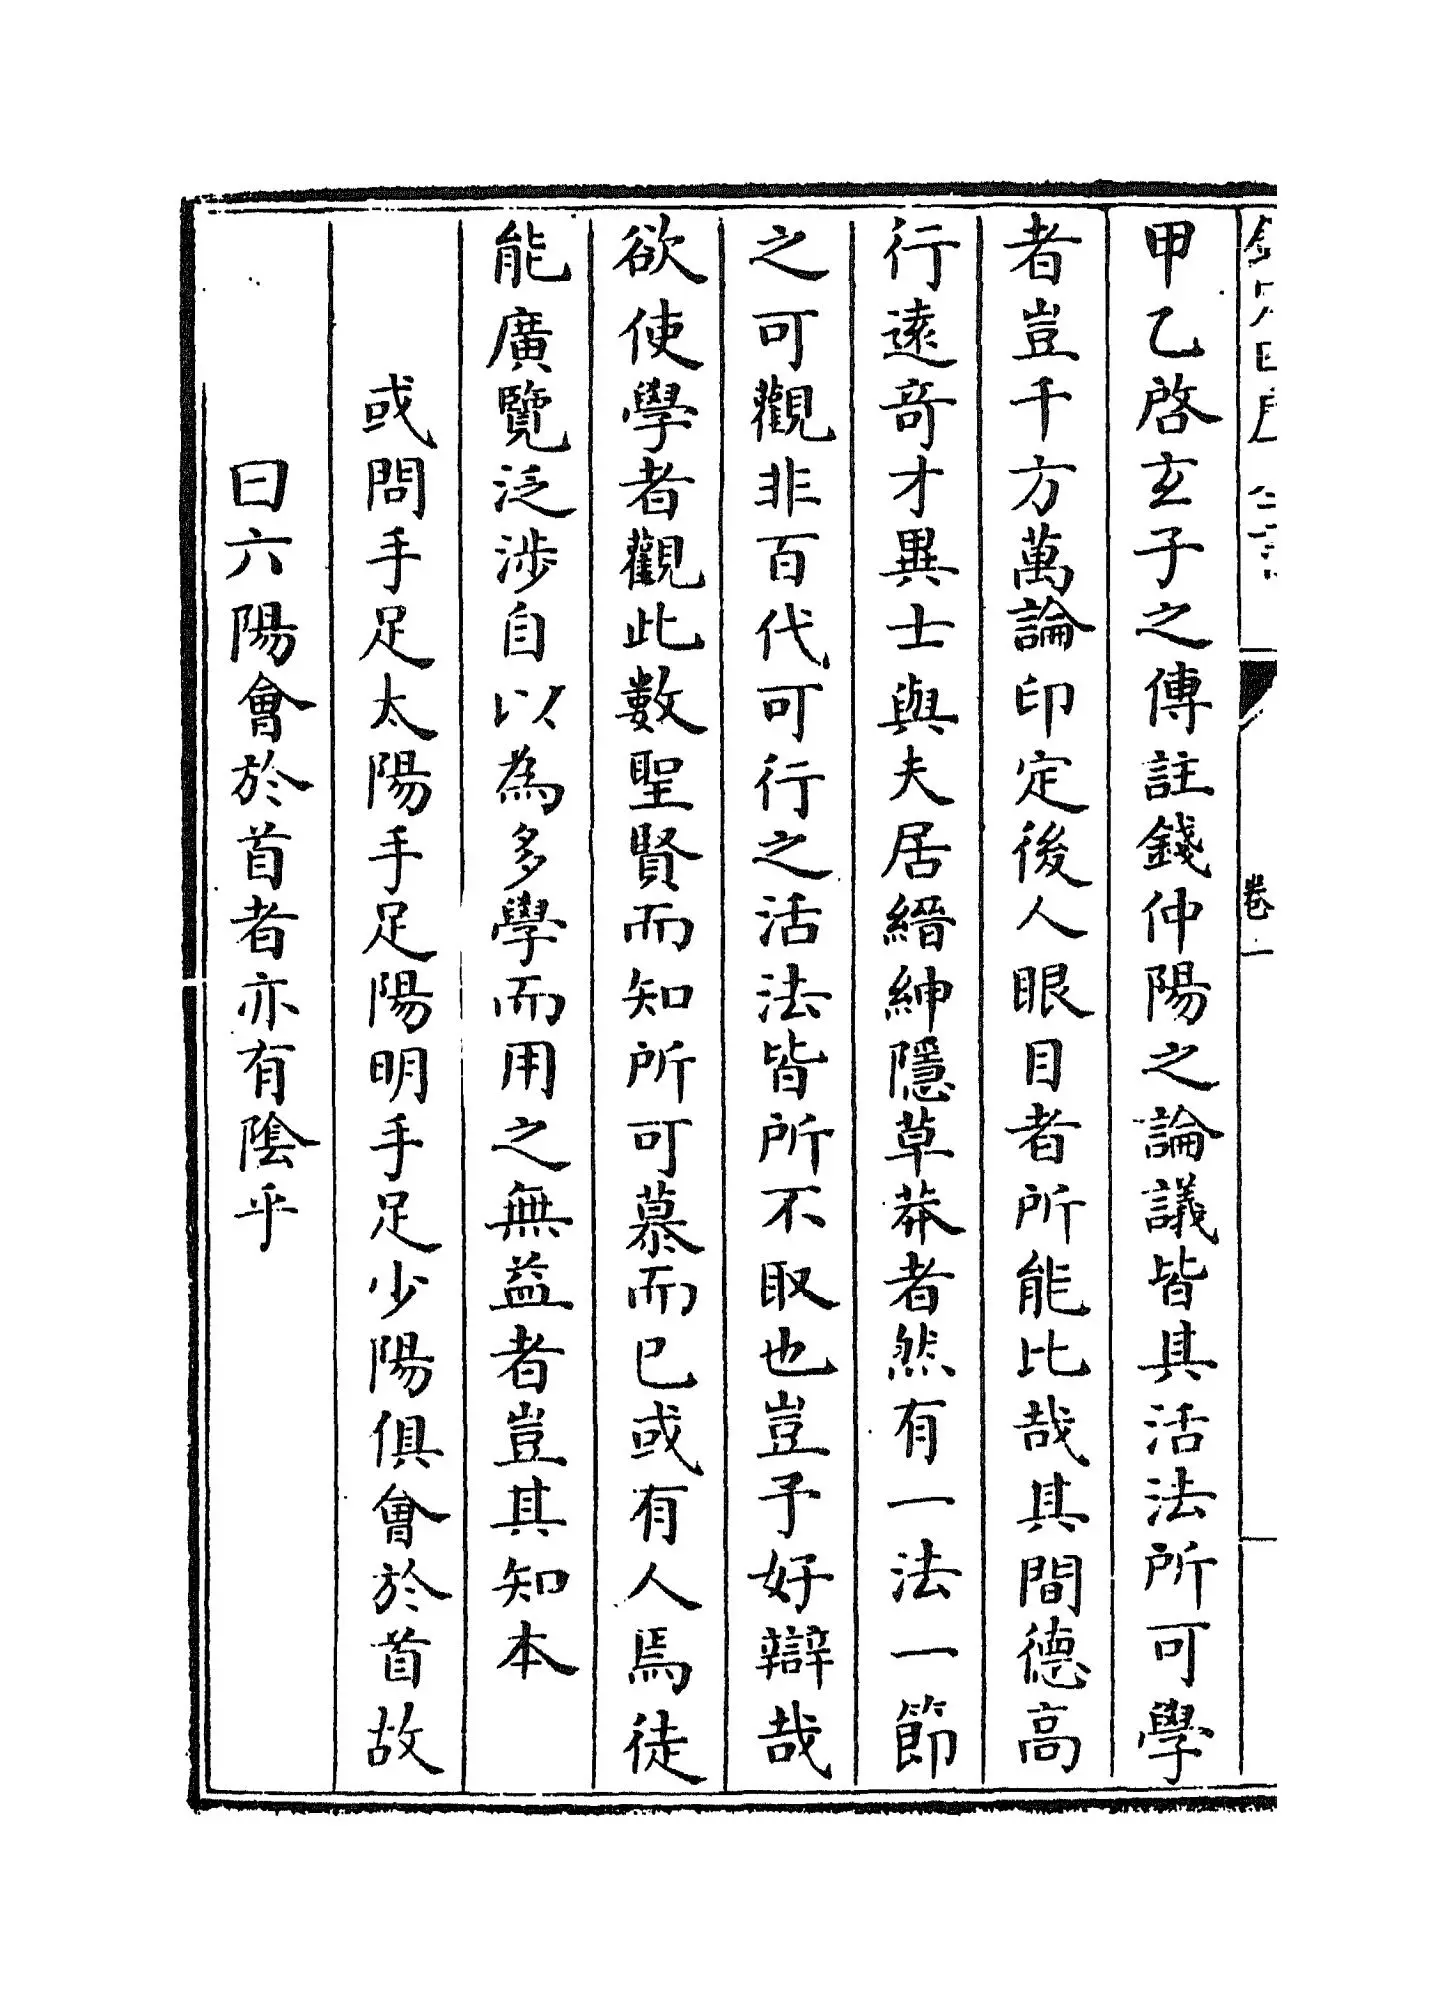 卷一
甲乙啓玄子之傳註錢仲陽之論議皆具活法所可學
者豈千方萬論印定後人眼目者所能比哉其間德高
行遠奇才異士與夫居縉紳隱草莽者然有一法一節
之可觀非百代可行之活法皆所不取也豈予好辯哉
欲使學者觀此數聖賢而知所可慕而已或有人焉徒
能廣覽泛涉自以為多學而用之無益者豈其知本
或問手足太陽手足陽明手足少陽俱會於首故
曰六陽會於首者亦有陰乎